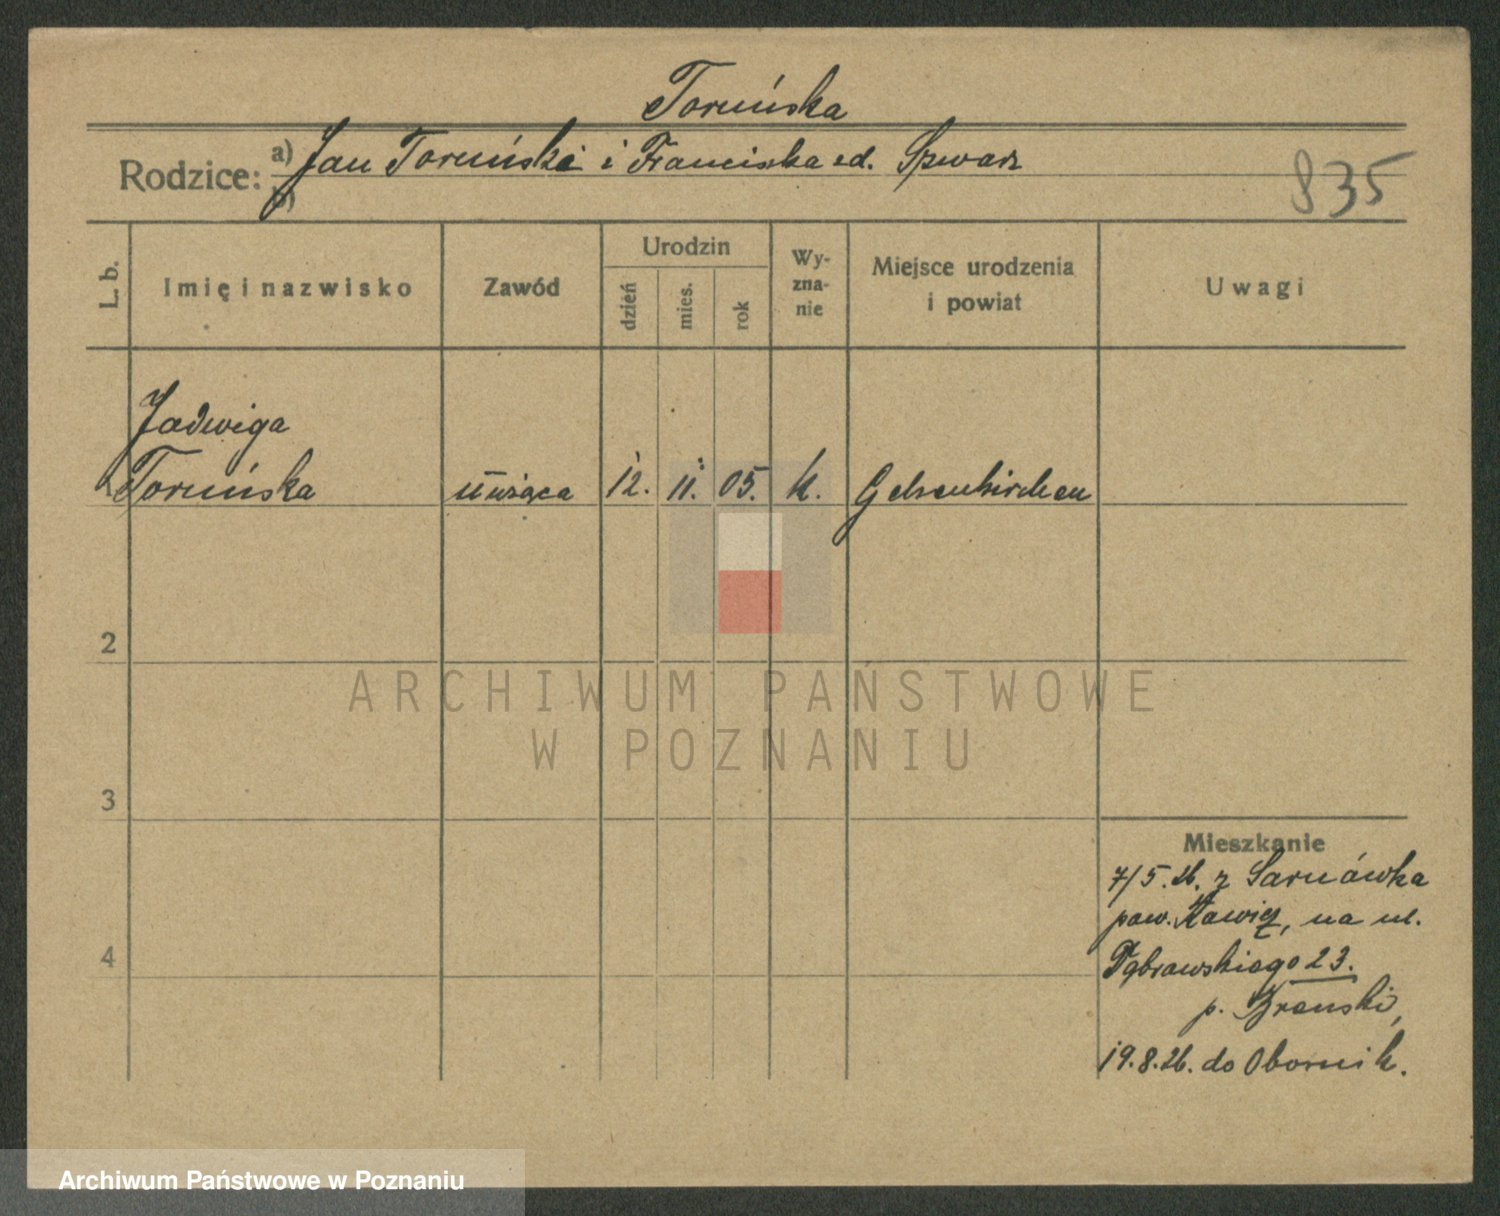 Toruńska
Rodzice: a) Jan Toruński i Franciszka zd. Szwarz
b)
835
L. b.
Imię i nazwisko
Zawód
Urodzin
dzień
mies.
rok
Wy-
zna-
nie
Miejsce urodzenia
i powiat
Uwagi
Jadwiga
Toruńska
12. 11. 05. k. Gelsenkirchen
2
3
4
Mieszkanie
7/5.26. z Sarnówka
pow. Rawicz, na ul.
Dąbrowskiego 23.
p.
19.8.26. do Obornik.
ARCHIWUM PAŃSTWOWE
W POZNANIU
Archiwum Państwowe w Poznaniu